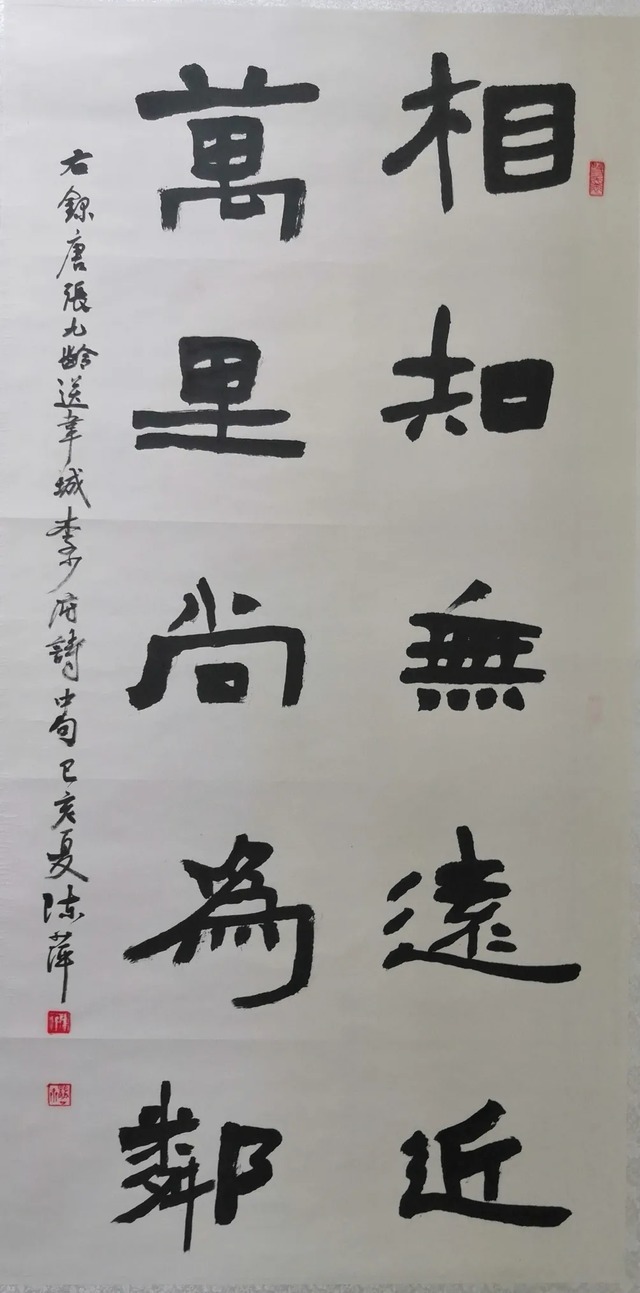 相知無遠近
萬里尚為鄰
右錄唐張九齡送韋城李少府詩中句己亥夏陈萍